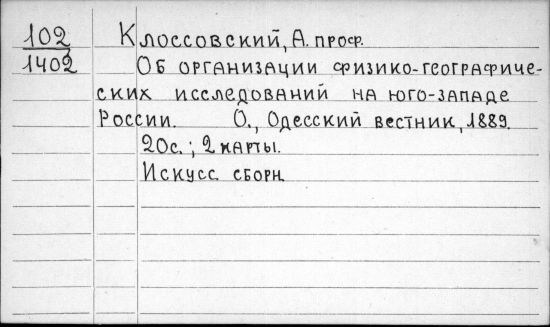 102 Клоссовский, А. проф.
1402 Об организации физико-географиче-
ских исследований на юго-западе
России. О., Одесский вестник, 1889.
20с.; 2 карты.
Искусс. сборн